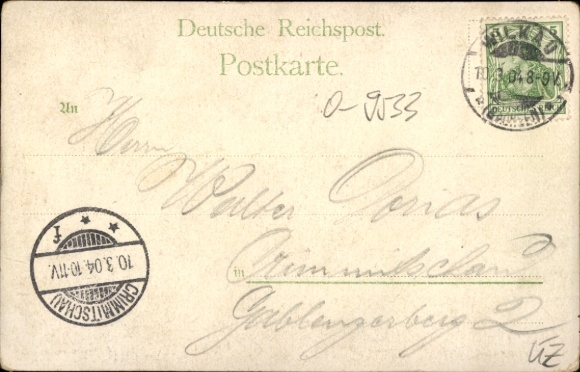 Deutsche Reichspost.
Postkarte.
WILKAU
10.3.04.8-9V.
(SACHSEN)
DEUTSCHES
5
o-9533
An
Herrn
Walter Dorias
in Crimmitschau
Gablenzerberg 2
CRIMMITSCHAU
10.3.04.10-11V.
f
ÜZ